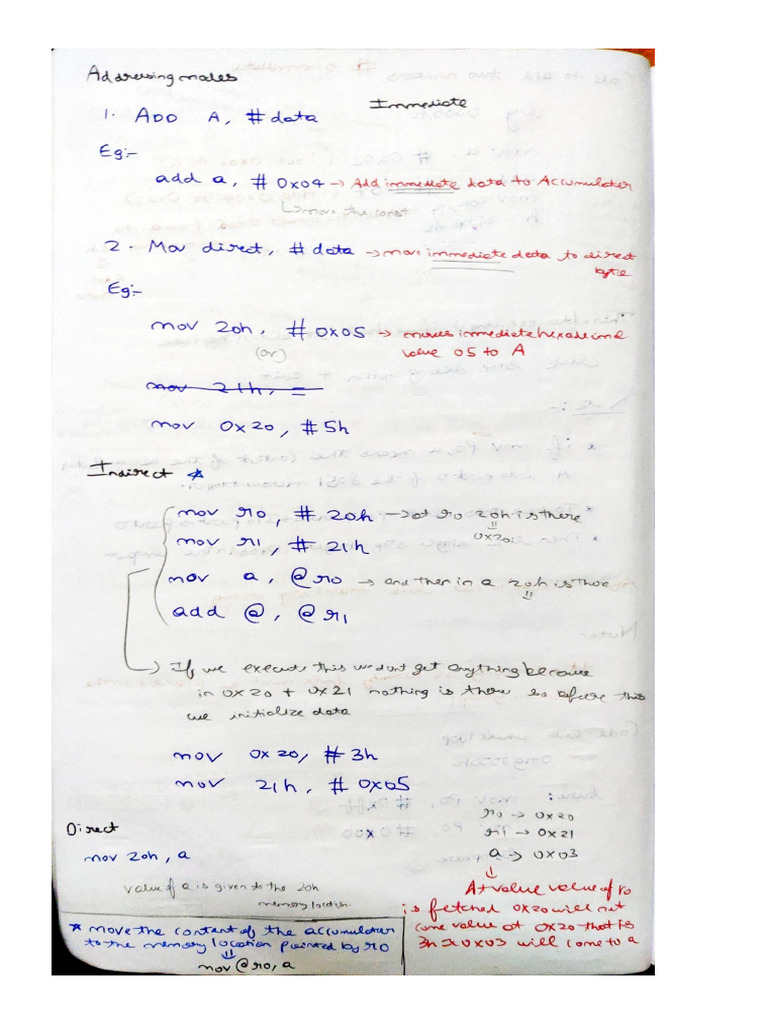 Addressing modes
Immediate
1. ADD A, #data
Eg:-
add a, #0x04 → Add immediate data to Accumulator
↳ move the const
2. Mov direct, #data → move immediate data to direct
byte
Eg:-
mov 20h, #0x05 → moves immediate hexadecimal
(or) value 05 to A
mov 21h, =
mov 0x20, #5h
Indirect *
mov r0, #20h → at r0 20h is there
0x20
mov r1, #21h
mov a, @r0 → and then in a 20h is there
add @, @r1
→ If we execute this we dont get anything because
in 0x20 + 0x21 nothing is there so before this
we initialize data
mov 0x20, #3h
mov 21h, #0x05
Direct
mov 20h, a
value of a is given to the 20h
memory location.
r0 → 0x20
r1 → 0x21
a → 0x03
↓
At value value of r0
is fetched 0x20 will not
come value at 0x20 that is
3h 0x03 will come to a
* move the content of the accumulator
to the memory location pointed by r0
⇓
mov @r0, a